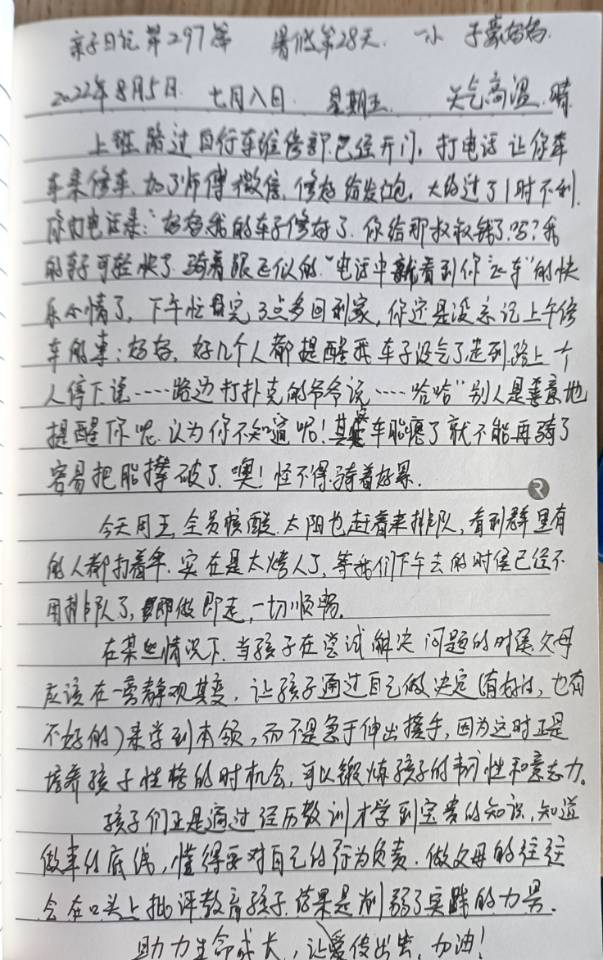 亲子日记第297篇 暑假第28天. 一小 子豪妈妈.
2022年8月5日. 七月八日. 星期五. 天气高温.晴
上班路过自行车维修部.已经开门, 打电话让你牵
车来修车, 加了师傅微信, 修好给发红包. 大约过了1时不到.
你的电话来:“妈妈我的车子修好了. 你给那叔叔钱了吗?我
的车子可轻快了.骑着跟飞似的.”电话中就看到你“飞车”的快
乐心情了, 下午忙完3点多回到家, 你还是没忘记上午修
车的事: 妈妈, 好几个人都提醒我车子没气了走到路上一个
人停下说……路边打扑克的爷爷说……哈哈”别人是善意地
提醒你呢.认为你不知道呢! 其实车胎瘪了就不能再骑了
容易把胎撵破了. 噢! 怪不得骑着好累.
今天周五.全员核酸.太阳也赶着来排队, 看到群里有
的人都打着伞. 实在是太烤人了, 等我们下午去的时候已经不
用排队了, 即做即走, 一切顺畅.
在某些情况下, 当孩子在尝试解决问题的时候父母
应该在一旁静观其变, 让孩子通过自己做决定(有好的, 也有
不好的)来学到本领, 而不是急于伸出援手, 因为这时正是
培养孩子性格的时机会, 可以锻炼孩子的韧性和意志力。
孩子们正是通过经历教训才学到宝贵的知识, 知道
做事的底线, 懂得要对自己的行为负责. 做父母的往往
会在口头上批评教育孩子.结果是削弱了实践的力量.
助力生命成长, 让爱传出去, 加油!